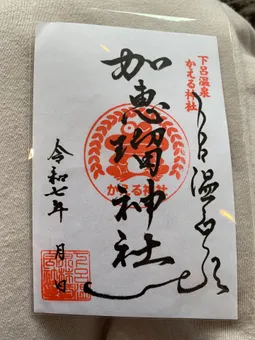 下呂温泉
かえる神社
下呂温泉
加恵瑠神社
かえる神社
令和七年 月 日